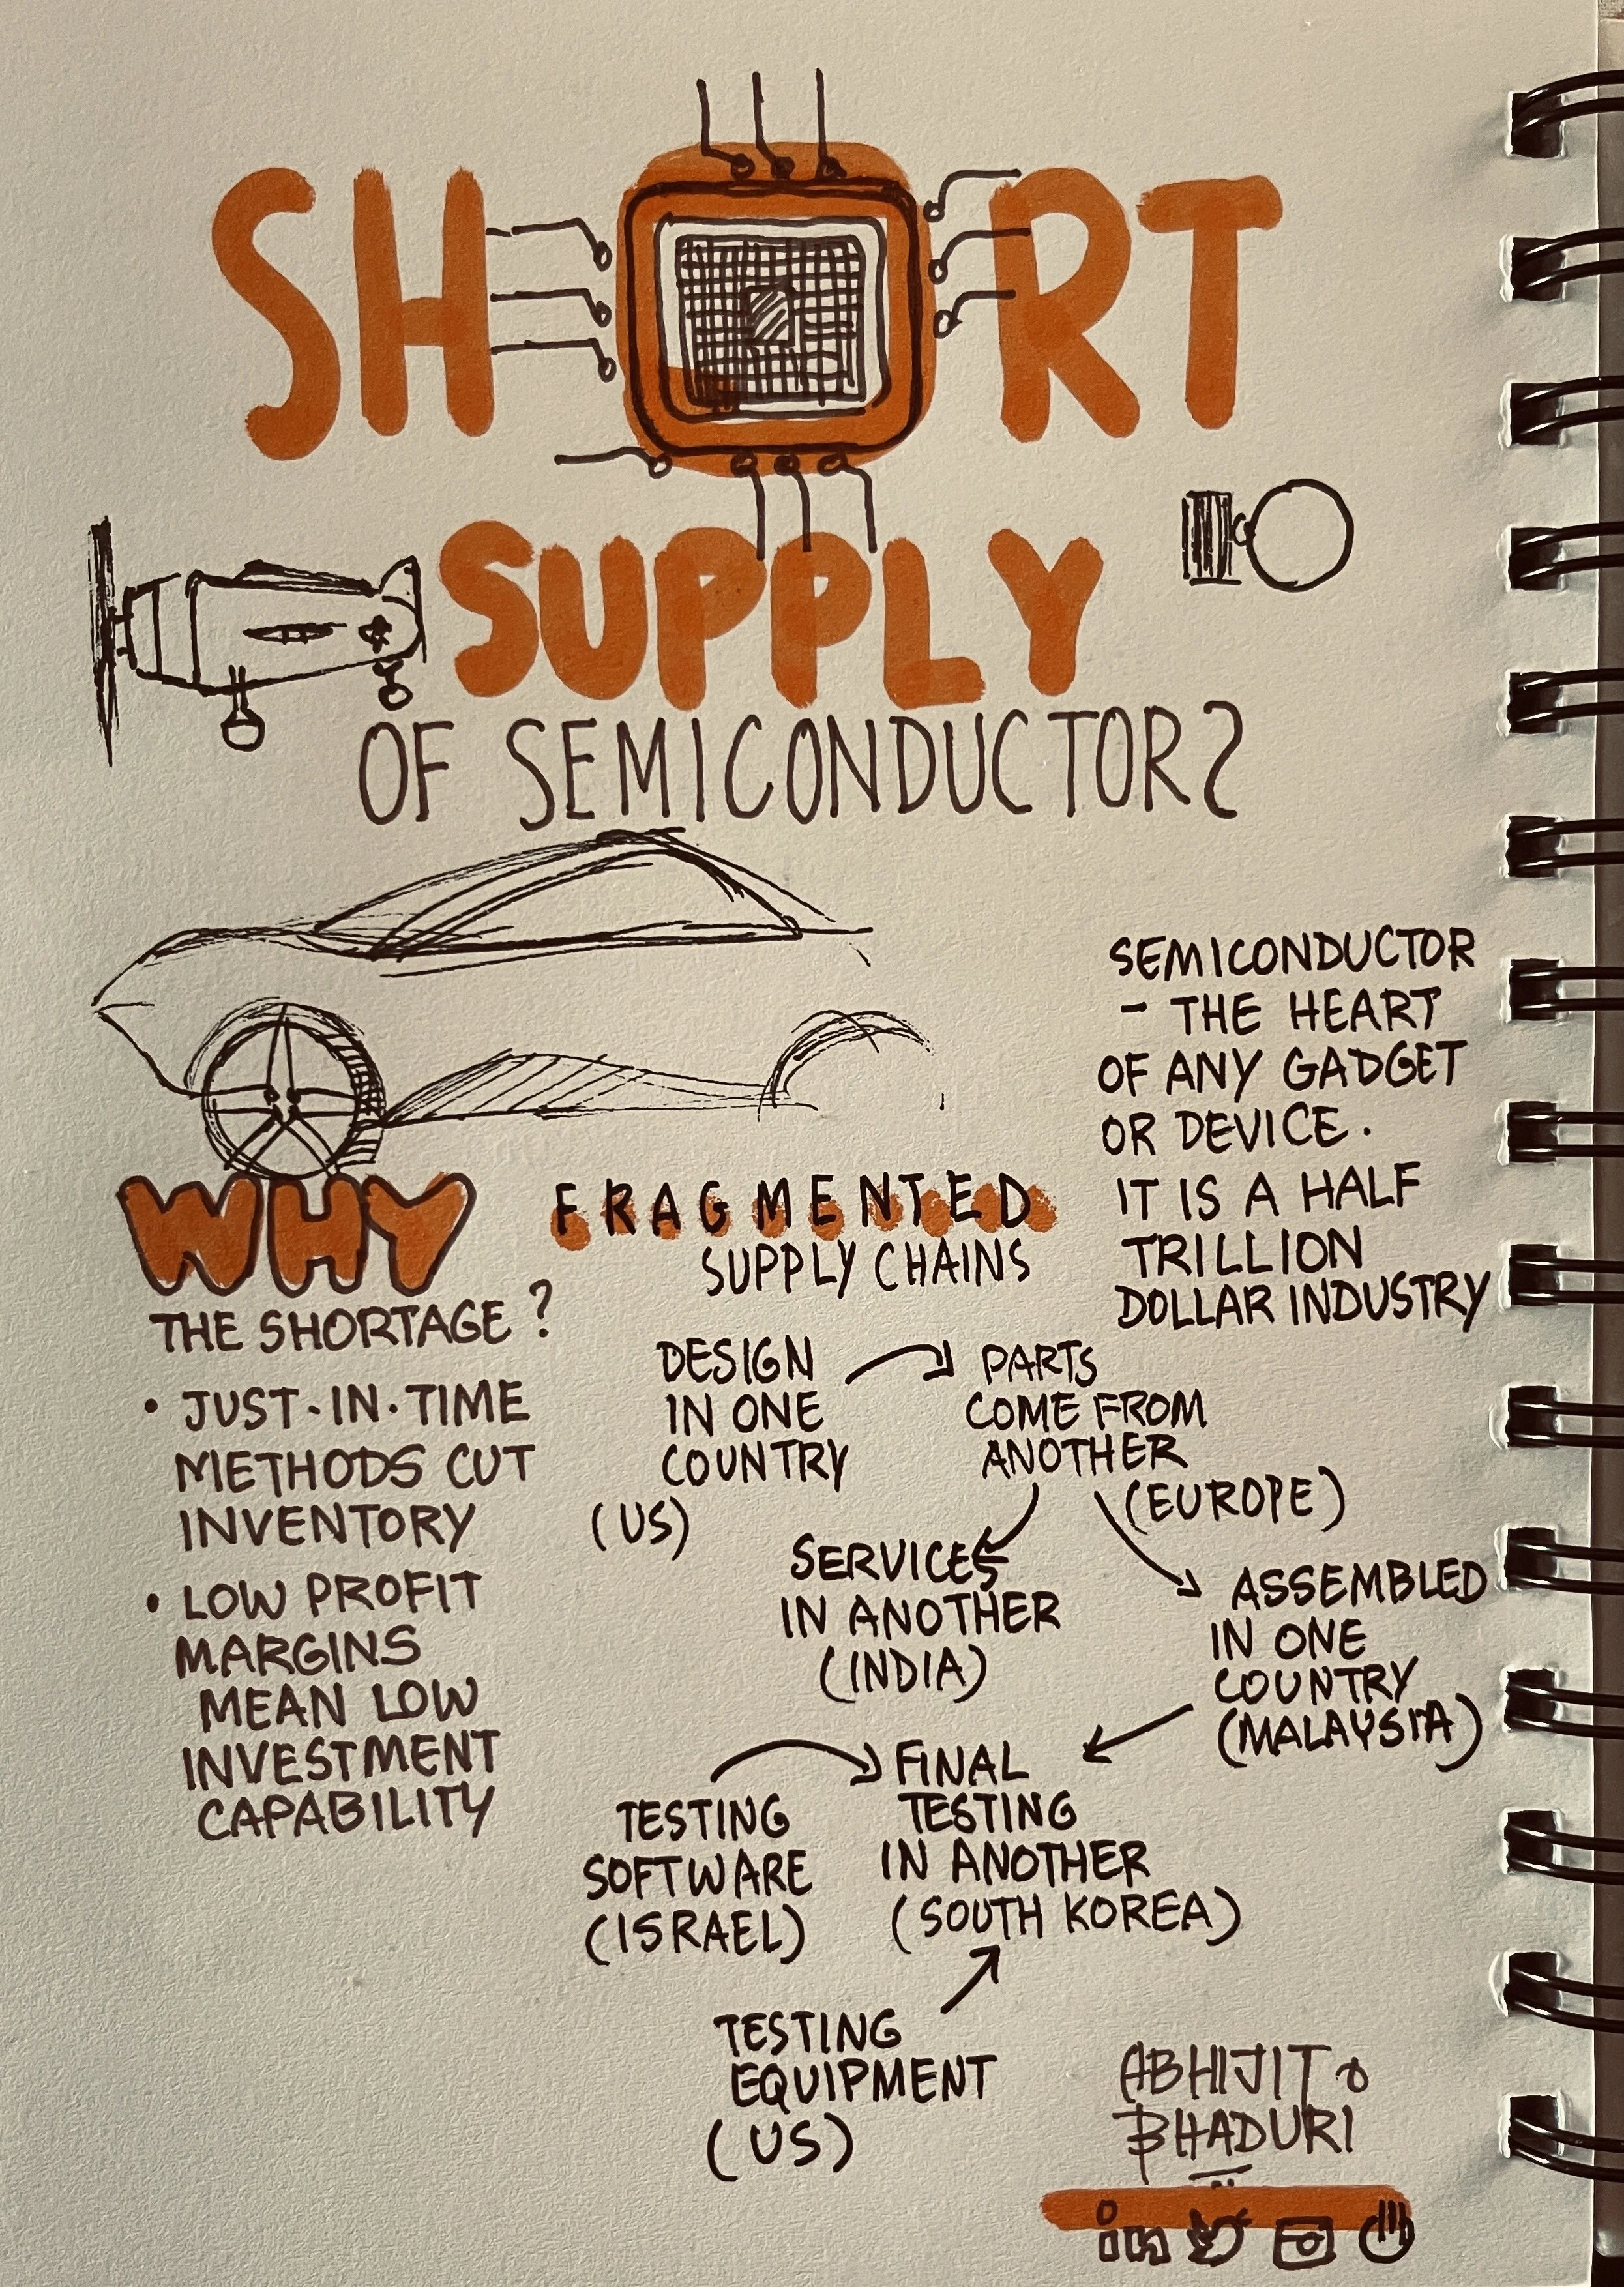 SHORT
SUPPLY
OF SEMICONDUCTORS
SEMICONDUCTOR
- THE HEART
OF ANY GADGET
OR DEVICE.
IT IS A HALF
TRILLION
DOLLAR INDUSTRY
WHY
THE SHORTAGE ?
• JUST-IN-TIME
METHODS CUT
INVENTORY
• LOW PROFIT
MARGINS
MEAN LOW
INVESTMENT
CAPABILITY
FRAGMENTED
SUPPLY CHAINS
DESIGN
IN ONE
COUNTRY
(US)
PARTS
COME FROM
ANOTHER
(EUROPE)
SERVICES
IN ANOTHER
(INDIA)
ASSEMBLED
IN ONE
COUNTRY
(MALAYSIA)
FINAL
TESTING
IN ANOTHER
(SOUTH KOREA)
TESTING
SOFTWARE
(ISRAEL)
TESTING
EQUIPMENT
(US)
ABHIJIT
BHADURI
in